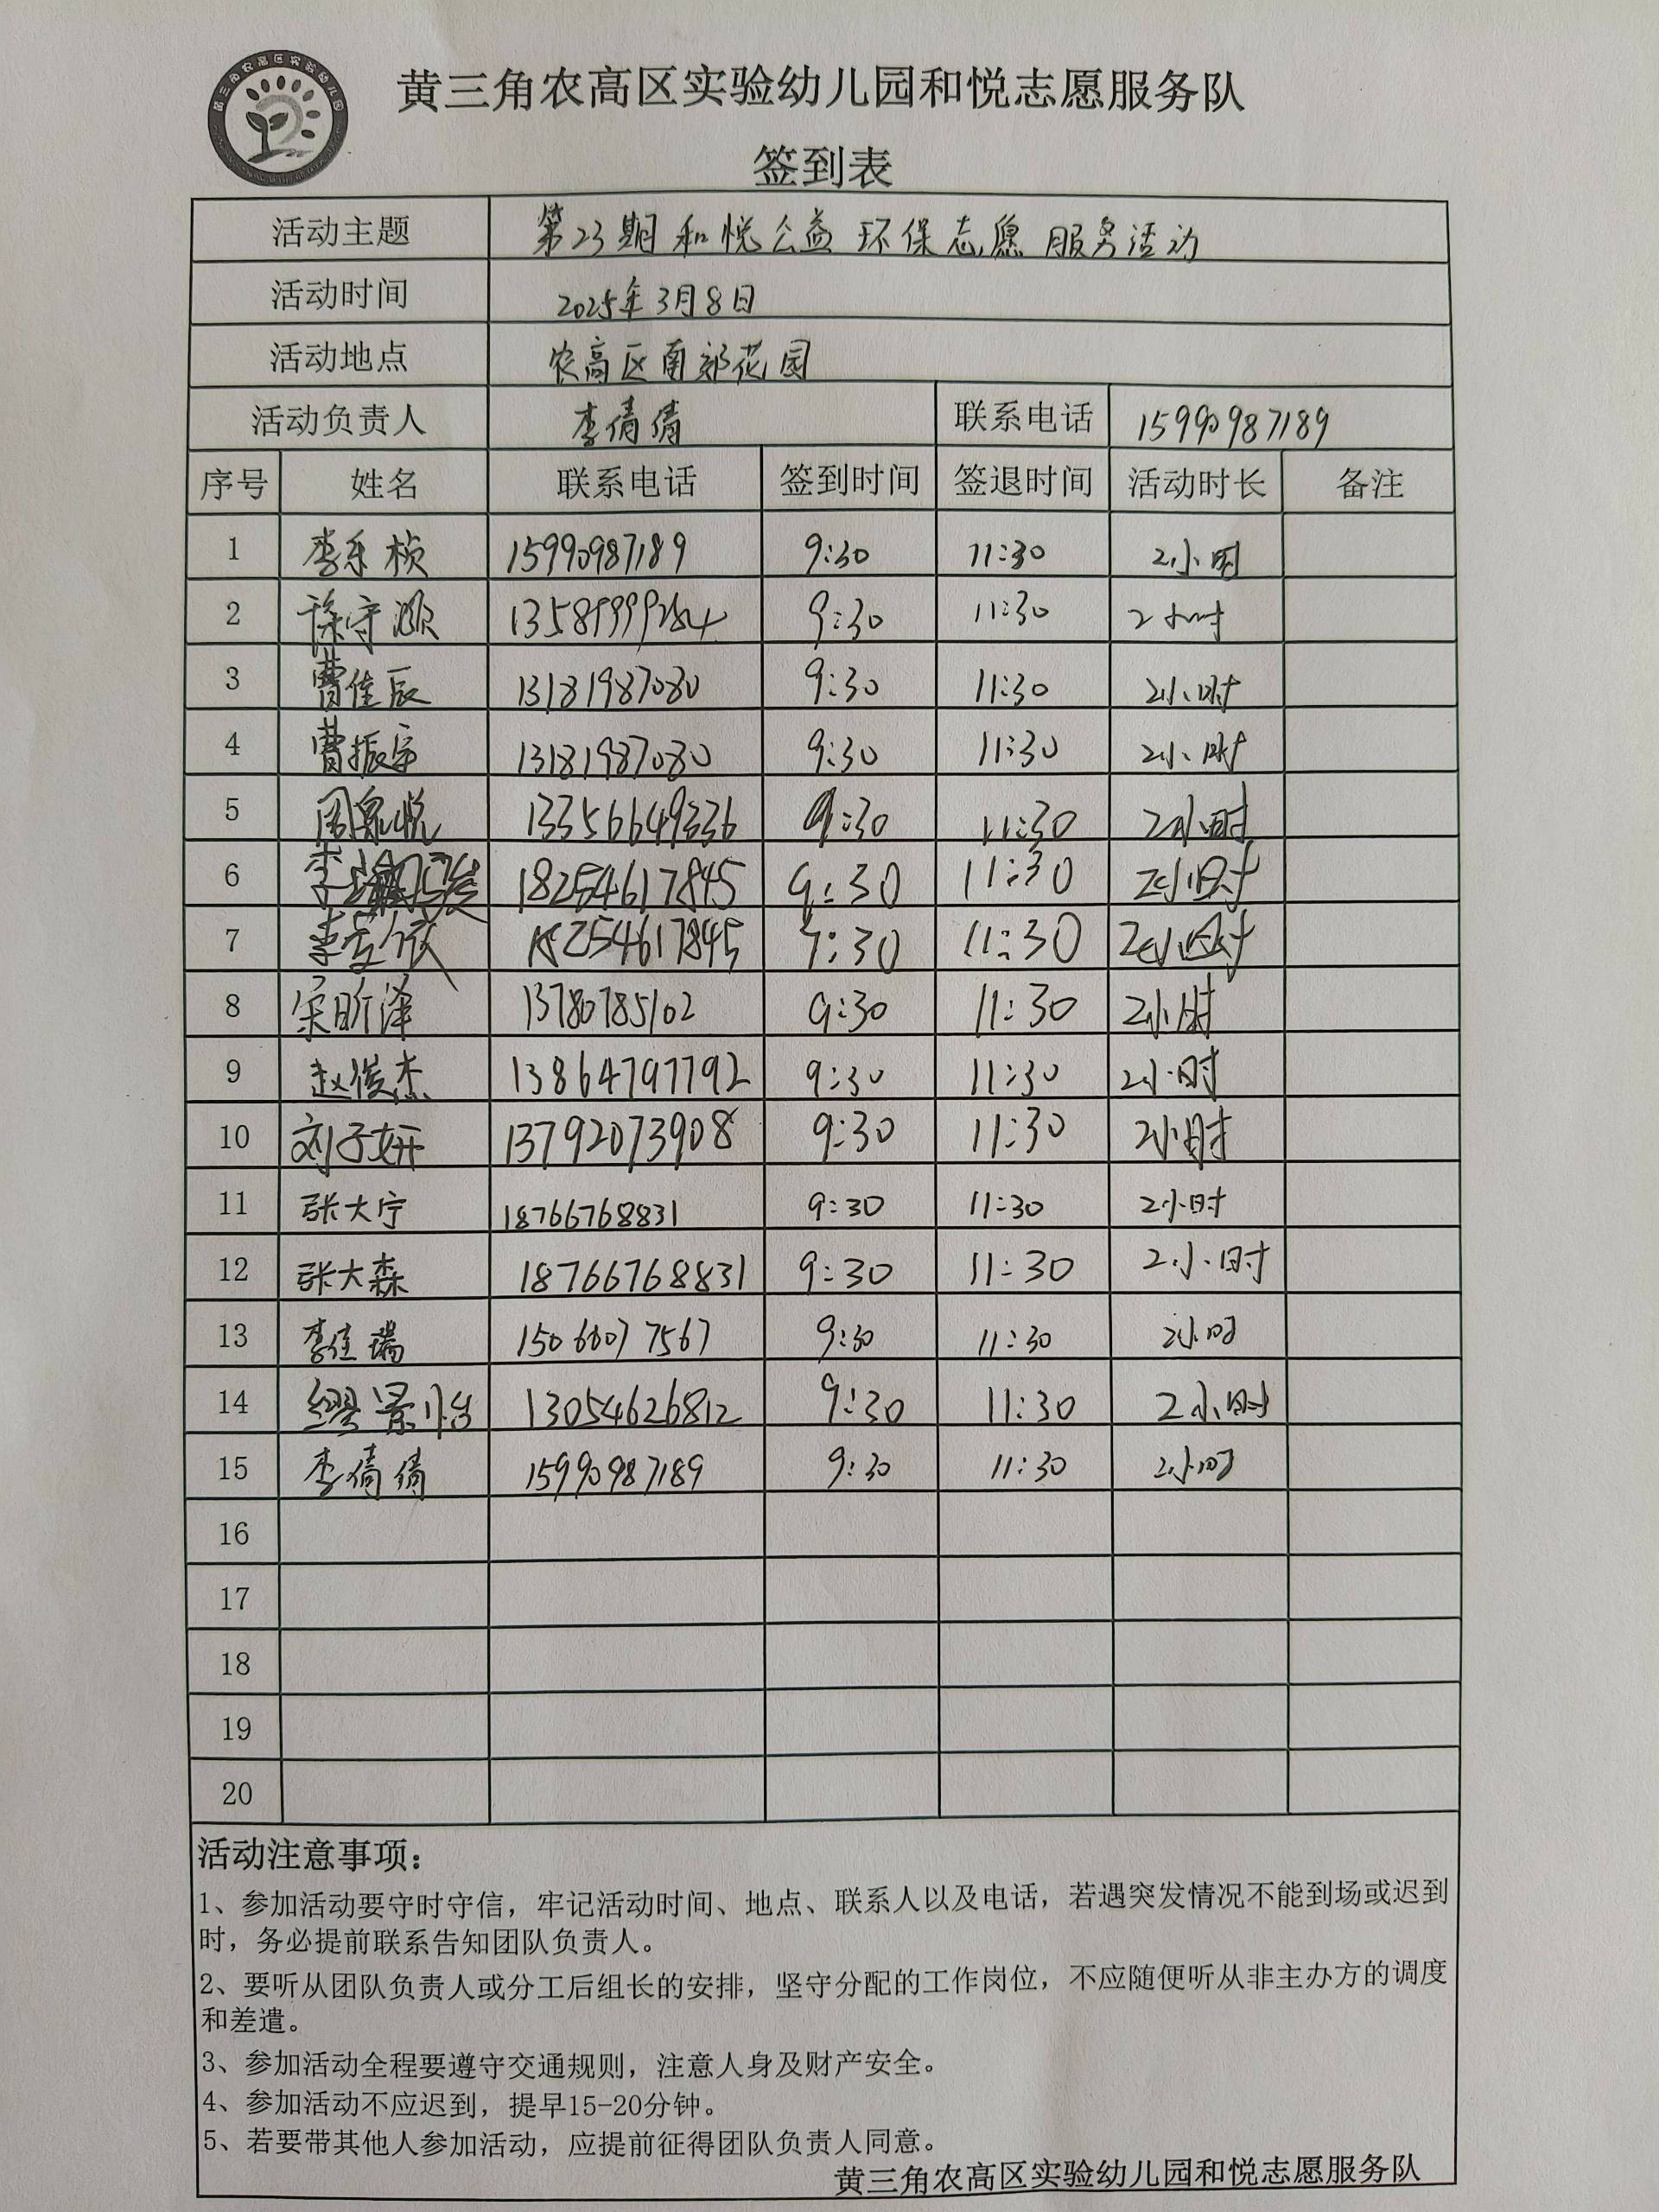 黄三角农高区实验幼儿园和悦志愿服务队
签到表
活动主题 第23期和悦公益环保志愿服务活动
活动时间 2025年3月8日
活动地点 农高区南郊花园
活动负责人 李倩倩 联系电话 15990987189
序号 姓名 联系电话 签到时间 签退时间 活动时长 备注
1 李乐桢 15990987189 9:30 11:30 2小时
2 徐守灏 13589999284 9:30 11:30 2小时
3 曹佳辰 13181987080 9:30 11:30 2小时
4 曹振宇 13181987080 9:30 11:30 2小时
5 周泉悦 13356649336 9:30 11:30 2小时
6 李 18254617845 9:30 11:30 2小时
7 李 18254617845 9:30 11:30 2小时
8 宋昕泽 13780785102 9:30 11:30 2小时
9 赵俊杰 13864797792 9:30 11:30 2小时
10 刘子妍 13792073908 9:30 11:30 2小时
11 张大宁 18766768831 9:30 11:30 2小时
12 张大森 18766768831 9:30 11:30 2小时
13 李佳瑞 15066077567 9:30 11:30 2小时
14 缪景怡 13054626812 9:30 11:30 2小时
15 李倩倩 15990987189 9:30 11:30 2小时
16
17
18
19
20
活动注意事项：
1、参加活动要守时守信，牢记活动时间、地点、联系人以及电话，若遇突发情况不能到场或迟到
时，务必提前联系告知团队负责人。
2、要听从团队负责人或分工后组长的安排，坚守分配的工作岗位，不应随便听从非主办方的调度
和差遣。
3、参加活动全程要遵守交通规则，注意人身及财产安全。
4、参加活动不应迟到，提早15-20分钟。
5、若要带其他人参加活动，应提前征得团队负责人同意。
黄三角农高区实验幼儿园和悦志愿服务队